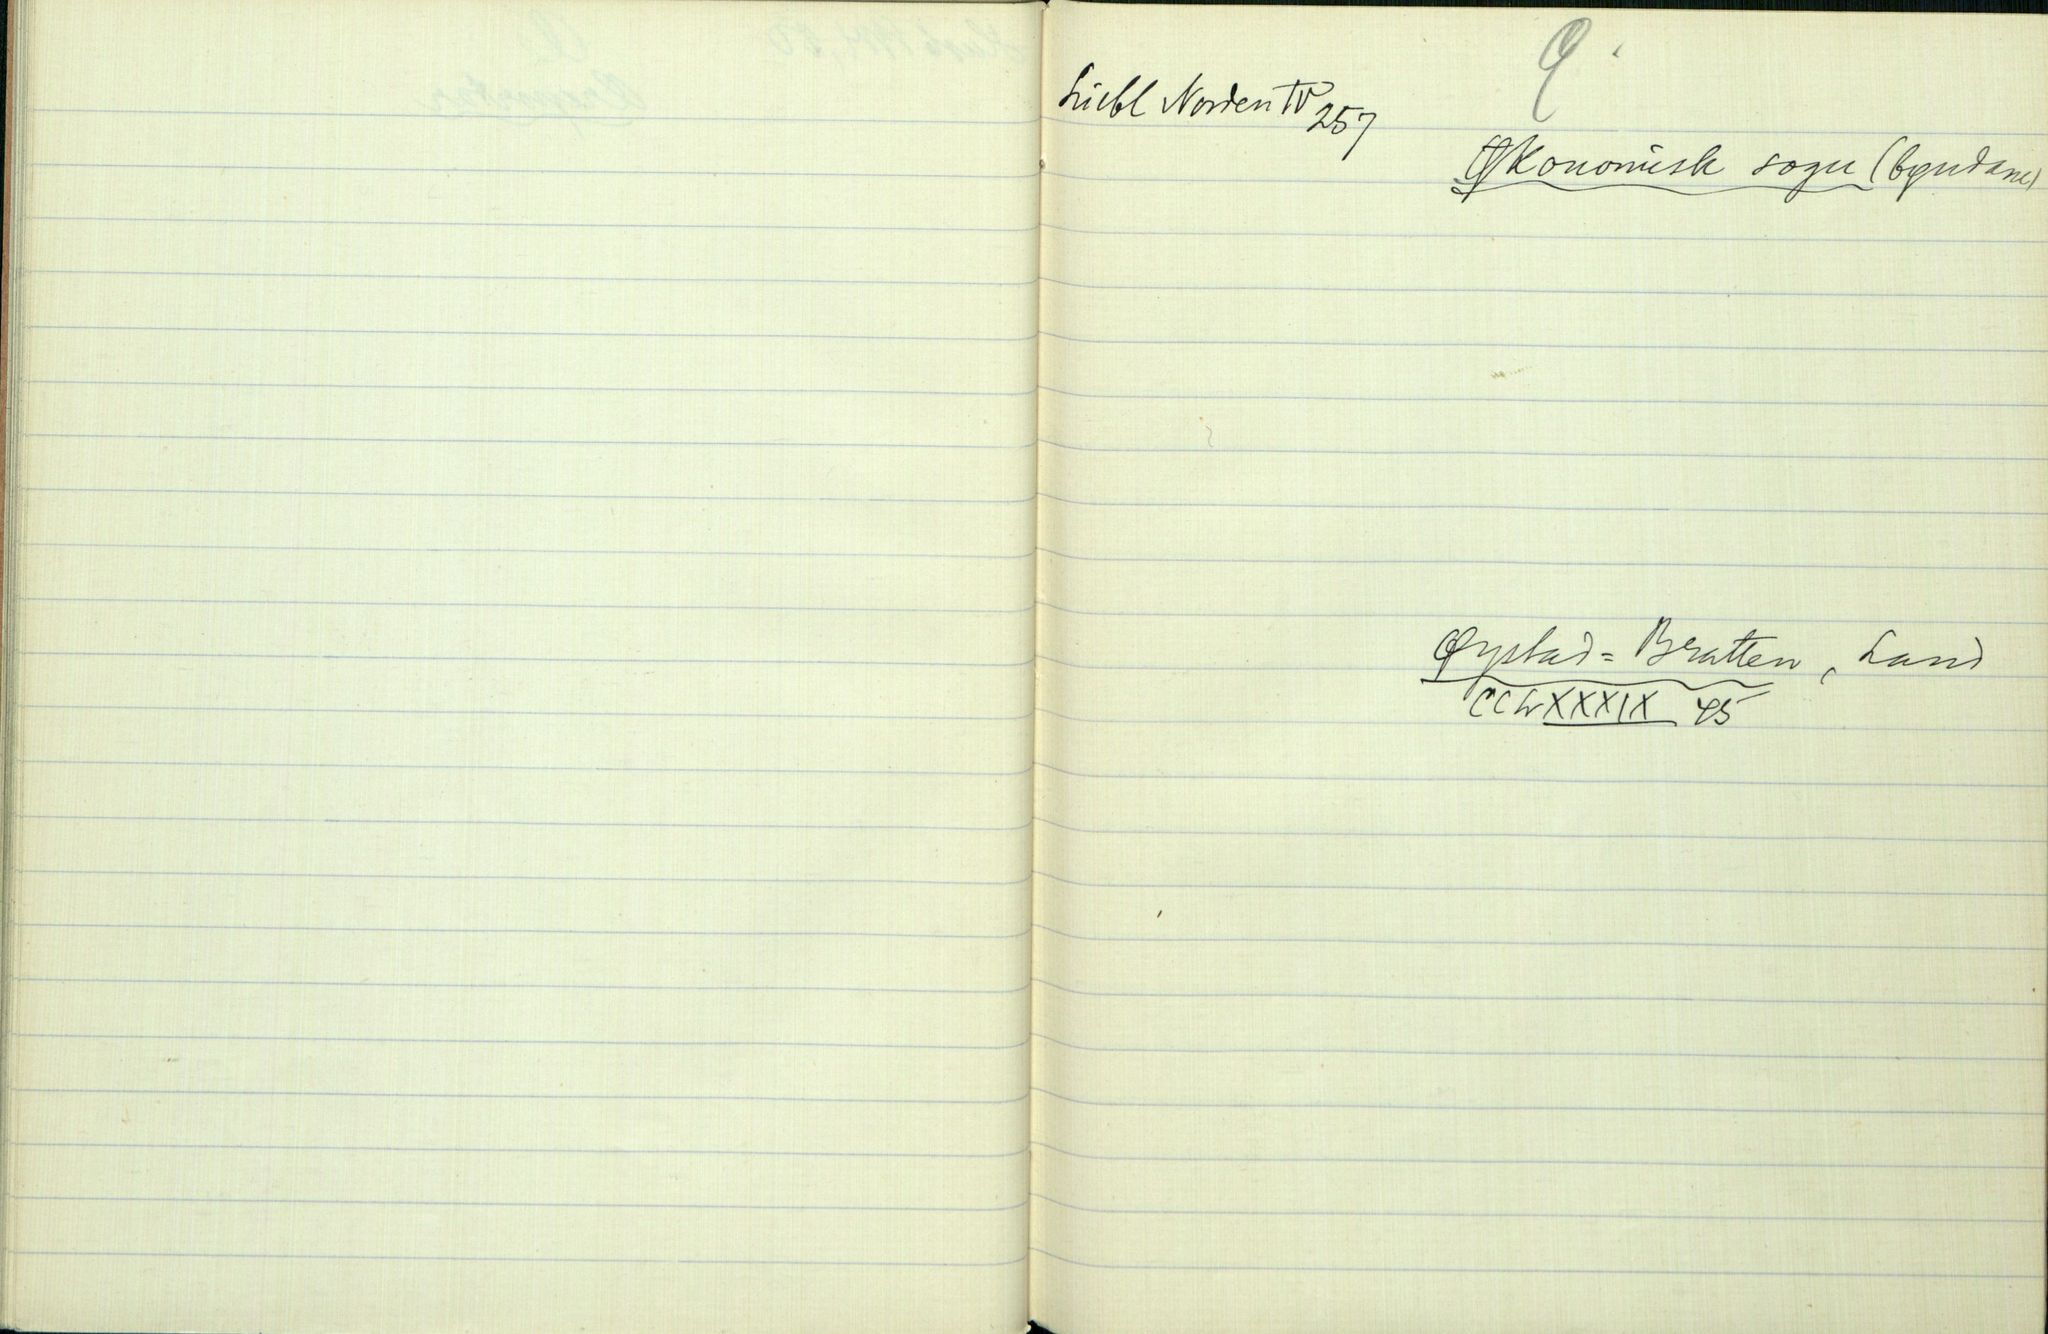 Ø
Liebl Norden IV 257
Økonomisk sogu (bygdane)
Øystad-Bratten, Land
CCLXXXIX 45